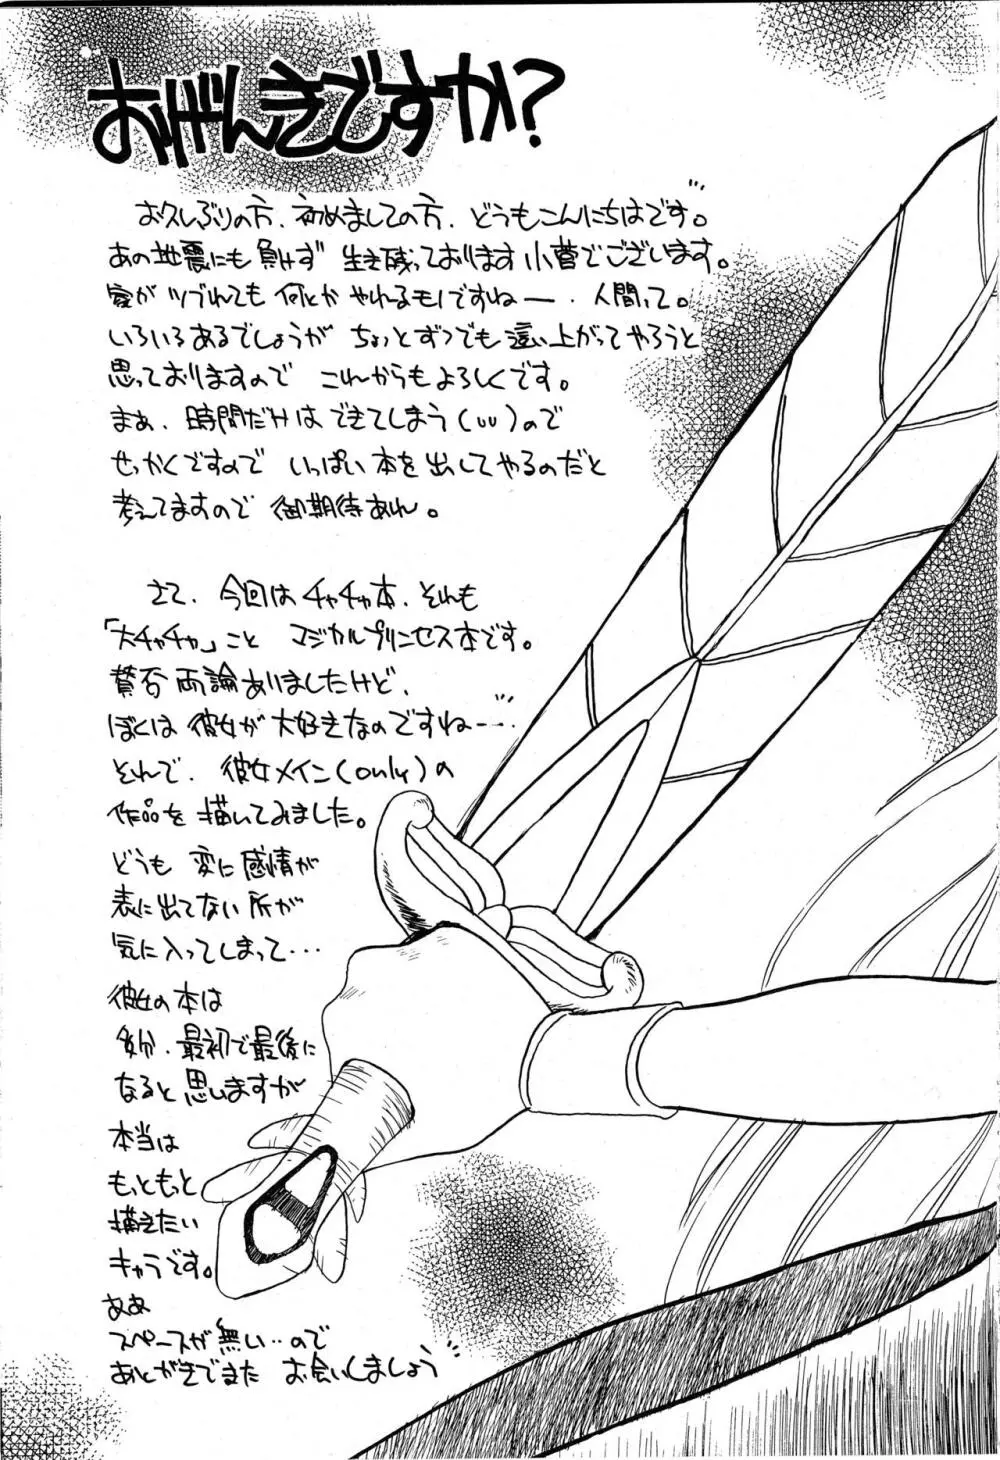 おげんきですか?
お久しぶりの方、初めましての方、どうもこんにちはです。
あの地震にも負けず 生き残っております小菅でございます。
家がツブれても何とかやれるモノですねー、人間って。
いろいろあるでしょうが ちょっとずつでも這い上がってやろうと
思っておりますので これからもよろしくです。
まぁ、時間だけはできてしまう(いい)ので
せっかくですので いっぱい本を出してやるのだと
考えてますので 御期待あれ。
さて、今回はチャチャ本、それも
「大チャチャ」こと マジカルプリンセス本です。
賛否両論ありましたけど、
ぼくは彼女が大好きなのですねー…
それで、彼女メイン(only)の
作品を描いてみました。
どうも 変に感情が
表に出てない所が
気に入ってしまって…
彼女の本は
多分、最初で最後に
なると思いますが
本当は
もっともっと
描きたい
キャラです。
ああ
スペースが無い…ので
あとがきでまた お会いしましょう